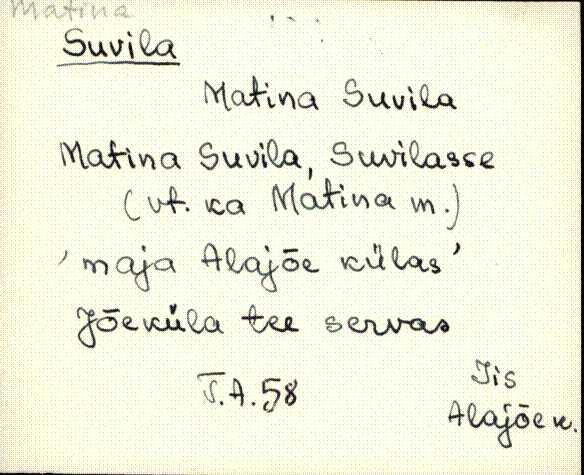 Matina
Suvila
Matina Suvila
Matina Suvila, Suvilasse
(vt. ka Mátina m.)
'maja Alajõe külas'
Jõeküla tee servas
T.A. 58
Iis
Alajõe k.